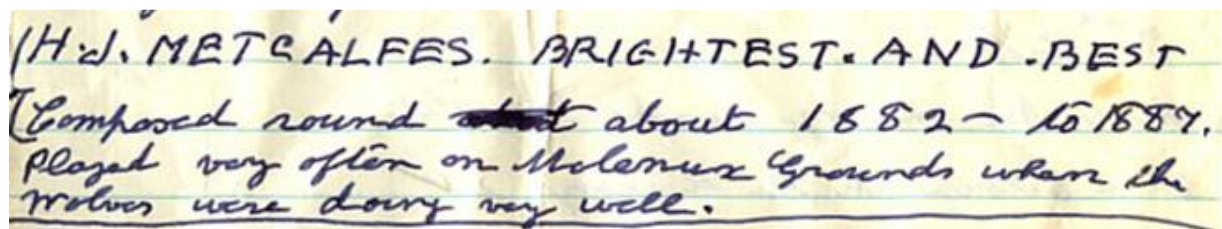 H.J. METCALFES. BRIGHTEST. AND. BEST
[Composed round about 1882 - to 1887.
Played very often on Molenux Grounds when the
Wolves were doing very well.